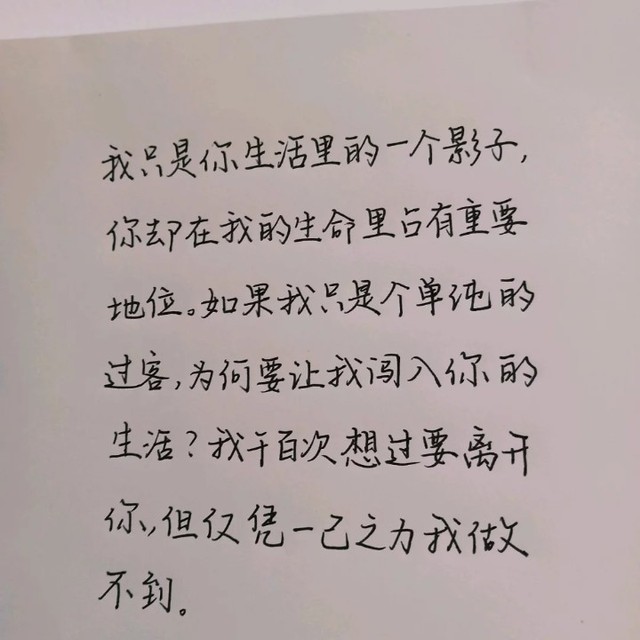 我只是你生活里的一个影子,
你却在我的生命里占有重要
地位。如果我只是个单纯的
过客,为何要让我闯入你的
生活?我千百次想过要离开
你,但仅凭一己之力我做
不到。